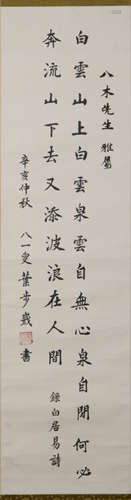 八木先生 雅屬
白雲山上白雲泉雲自無心泉自閒何必
奔流山下去又添波浪在人間 錄白居易詩
辛亥仲秋 八一叟葉步戡 書